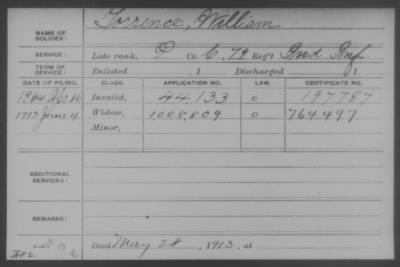 NAME OF SOLDIER: Torrence, William
SERVICE: Late rank, P Co. C, 79 Reg't Ind Inf
TERM OF SERVICE: Enlisted , 1 Discharged , 1
DATE OF FILING. CLASS. APPLICATION NO. LAW. CERTIFICATE NO.
1864 Invalid, 44,133 o 197,787
1913 June 4 Widow, 1,008,809 o 764497
Minor,
ADDITIONAL SERVICES:
REMARKS:
Died May 28, 1913, at